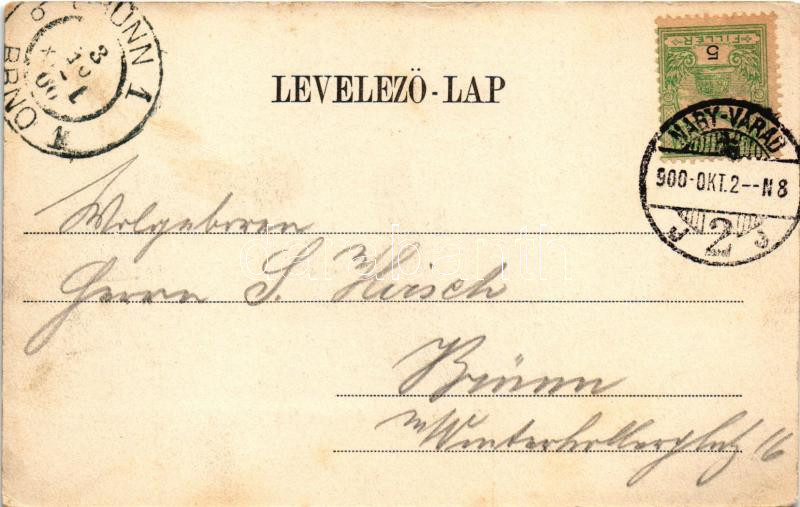 BRÜNN 1
3
FILLÉR
5
LEVELEZŐ-LAP
NAGY-VÁRAD
900-OKT.2--N8
2
Wolgeboren
Herrn S. Hirsch
Brünn
Winterhollerplatz 16